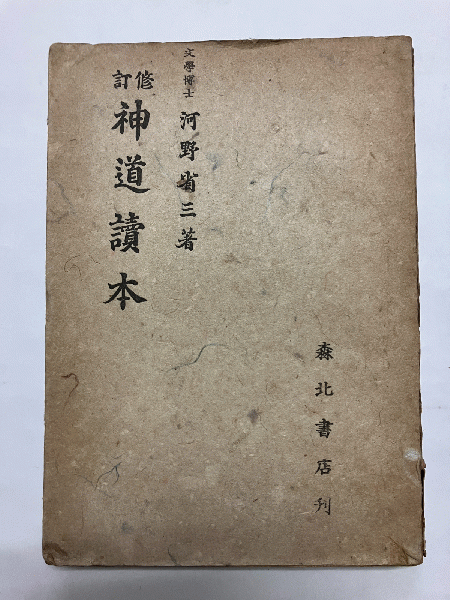 文學博士 河野省三著
修訂
神道讀本
森北書店刊